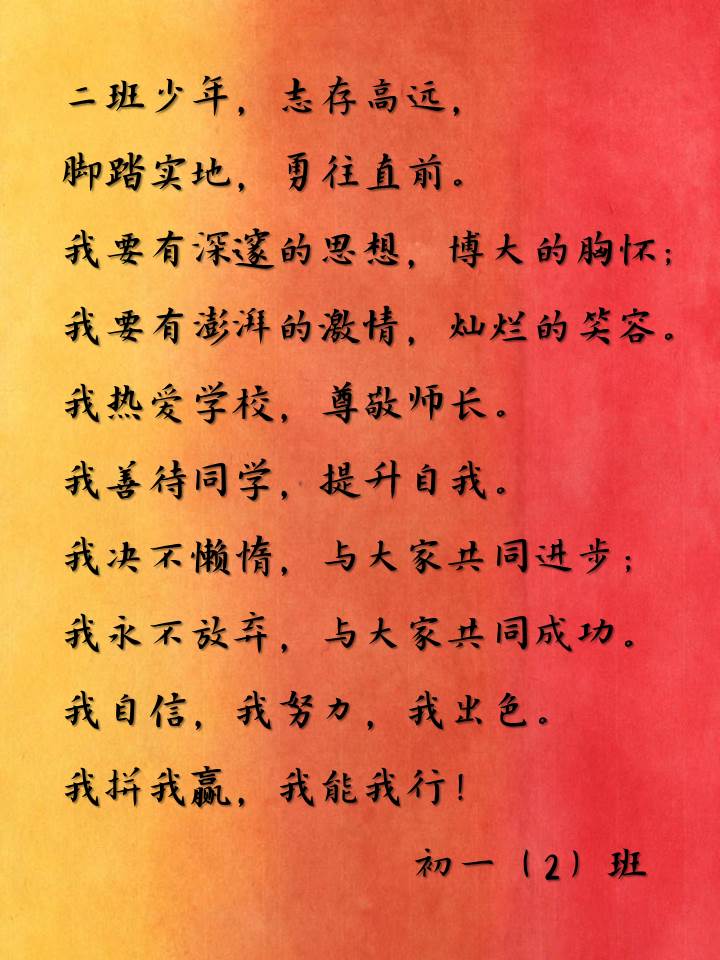 二班少年，志存高远，
脚踏实地，勇往直前。
我要有深邃的思想，博大的胸怀；
我要有澎湃的激情，灿烂的笑容。
我热爱学校，尊敬师长。
我善待同学，提升自我。
我决不懒惰，与大家共同进步；
我永不放弃，与大家共同成功。
我自信，我努力，我出色。
我拼我赢，我能我行！
初一（2）班